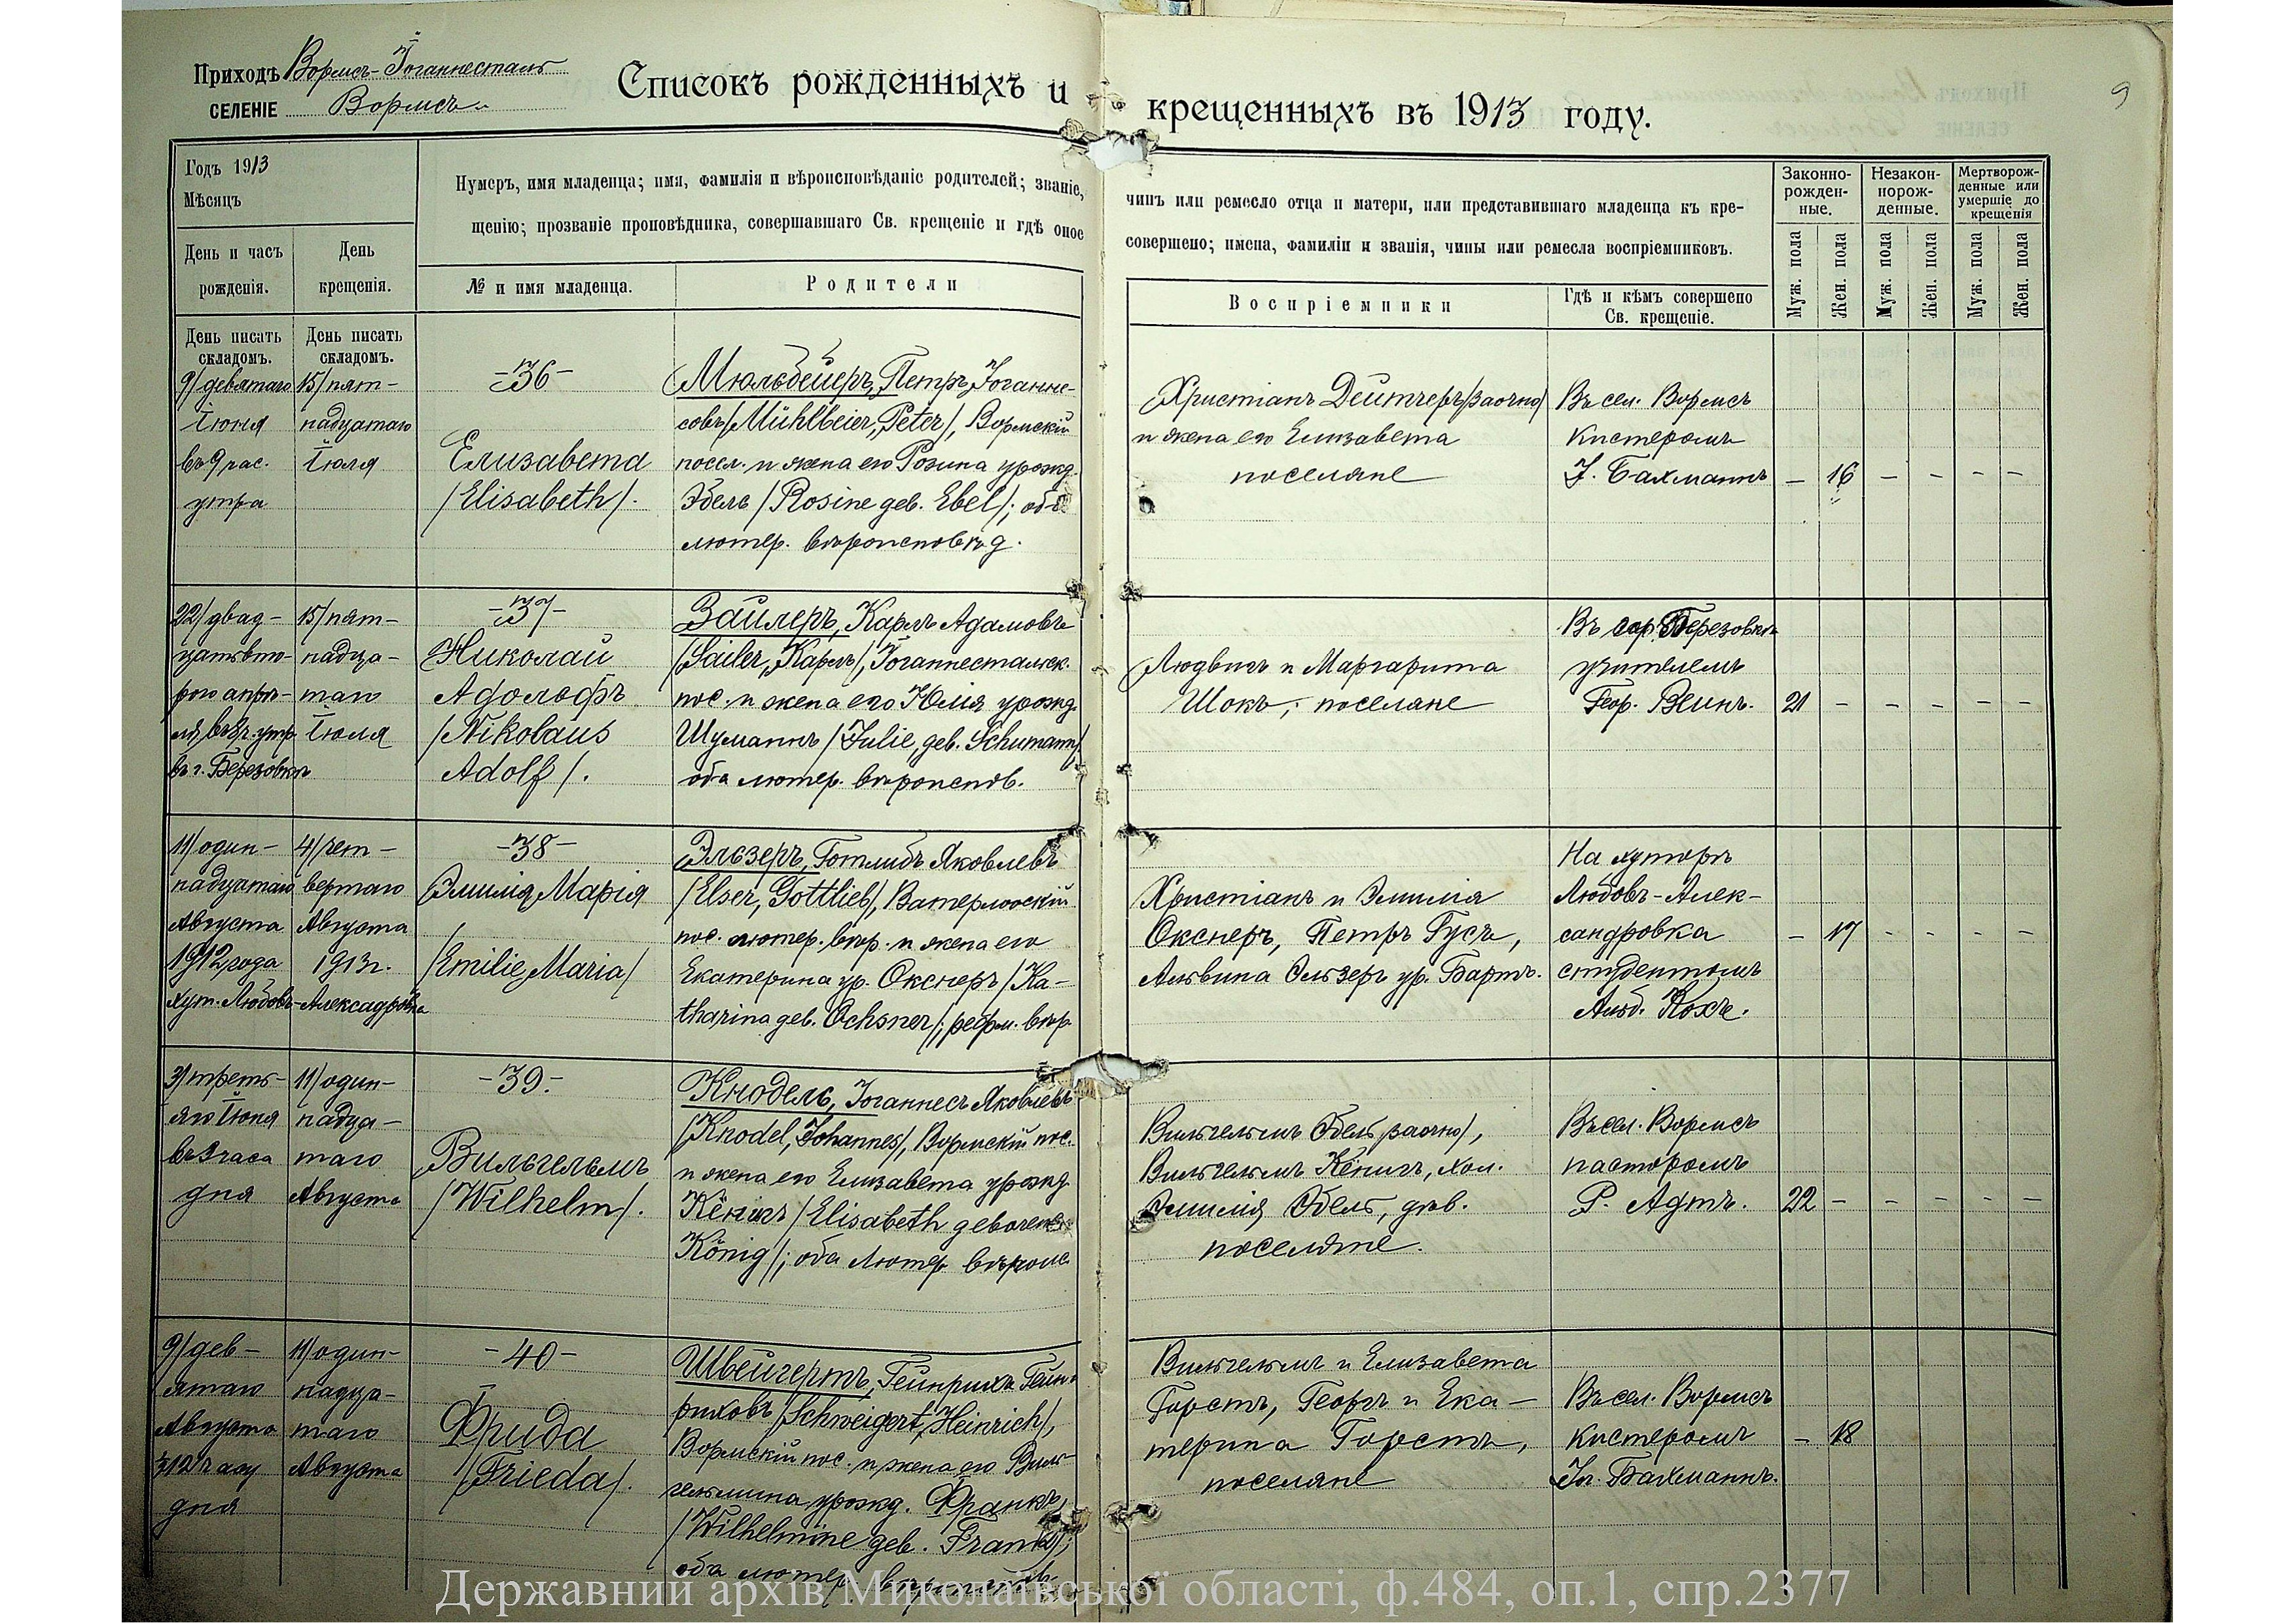 Приходъ Вормсъ-Іоганнесталь
СЕЛЕНІЕ Вормсъ
Списокъ рожденныхъ и крещенныхъ въ 1913 году.
9
Годъ 1913
Мѣсяцъ
День и часъ рожденія.
День крещенія.
Нумеръ, имя младенца; имя, фамилія и вѣроисповѣданіе родителей; званіе, чинъ или ремесло отца и матери, или представившаго младенца къ кре-
щенію; прозваніе проповѣдника, совершавшаго Св. крещеніе и гдѣ оное совершено; имена, фамиліи и званія, чины или ремесла воспріемниковъ.
№ и имя младенца.
Родители
Воспріемники
Гдѣ и кѣмъ совершено
Св. крещеніе.
Законно-
рожден-
ные.
Незакон-
норож-
денные.
Мертворож-
денные или
умершіе до
крещенія
Муж. пола
Жен. пола
Муж. пола
Жен. пола
Муж. пола
Жен. пола
День писать
складомъ.
День писать
складомъ.
9/девятаго
Іюня
въ 9 час.
утра
15/пят-
надцатаго
Іюля
-36-
Елизавета
/Elisabeth/.
Мюльбейеръ, Петръ Іоганне-
совъ /Mühlbeier, Peter/, Вормскій
посел. и жена его Розина урожд.
Эбель /Rosine geb. Ebel/; оба
лютер. вѣроисповѣд.
Христіанъ Дейтчеръ /заочно/
и жена его Елизавета
поселяне
Въ сел. Вормсъ
кистеромъ
І. Бахманнъ
- 16 - - - -
22/двад-
цатьвто-
рого апрѣ-
ля, въ 8 ч. утр.
въ г. Березовкѣ
15/пят-
надца-
таго
Іюля
-37-
Николай
Адольфъ
/Nikolaus
Adolf/.
Зайлеръ, Карлъ Адамовъ
/Sailer, Карлъ/, Іоганнестальск.
пос. и жена его Юлія урожд.
Шуманнъ /Julie, geb. Schumann/
оба лютер. вѣроиспов.
Людвигъ и Маргарита
Шокъ; поселяне
Въ гор. Березовкѣ
учителемъ
Геор. Вейнъ.
21 - - - - -
11/один-
надцатаго
Августа
1912 года
хут. Любовь-Алексадровка
4/чет-
вертаго
Августа
1913 г.
-38-
Эмилія Марія
/Emilie Maria/
Эльзеръ, Готлибъ Яковлевъ
/Elser, Gottlieb/, Ватерлооскій
пос. лютер. вѣр. и жена его
Екатерина ур. Окснеръ /Ka-
tharina geb. Ochsner/; реформ. вѣр.
Христіанъ и Эмилія
Окснеръ, Петръ Гусъ,
Альвина Эльзеръ ур. Бартъ.
На хуторѣ
Любовь-Алек-
сандровка
студентомъ
Альб. Кохъ.
- 17 - - - -
3/треть-
яго Іюня
въ 3 часа
дня
11/один-
надца-
таго
Августа
-39-
Вильгельмъ
/Wilhelm/.
Кнодель, Іоганнесъ Яковлевъ
/Knodel, Johannes/, Вормскій пос.
и жена его Елизавета урожд.
Кёнигъ /Elisabeth geborene
König/; оба лютер. вѣроис.
Вильгельмъ Эбель /заочно/,
Вильгельмъ Кёнигъ, хол.
Эмилія Эбель, дѣв.
поселяне.
Въ сел. Вормсъ
пасторомъ
Р. Адтъ.
22 - - - - -
9/дев-
ятаго
Августа
въ 12 часу
дня
11/один-
надца-
таго
Августа
-40-
Фрида
/Frieda/.
Швейгертъ, Гейнрихъ Гейн-
риховъ /Schweigert, Heinrich/,
Вормскій пос. и жена его Виль-
гельмина урожд. Франкъ
/Wilhelmine geb. Frank/;
оба лютер. вѣроиспов.
Вильгельмъ и Елизавета
Горстъ, Георгъ и Ека-
терина Горстъ,
поселяне
Въ сел. Вормсъ
кистеромъ
Іог. Бахманнъ.
- 18
Державний архів Миколаївської області, ф.484, оп.1, спр.2377